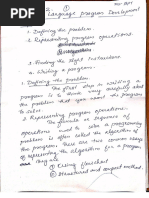 ①
Language program Development
1. Defining the problem.
2. Representing program operations.
3. Finding the right instructions
4. Writing program.
1. Defining the problem
The first step in writing a
program is to think very carefully about
the problem that you want the program
2. Representing program operations:
The formula or sequence of
operations used to solve a programming
problem is often called the algorithm of
the program. There are two common ways
of representing the algorithm for a program
① Using flowchart
② Structured and